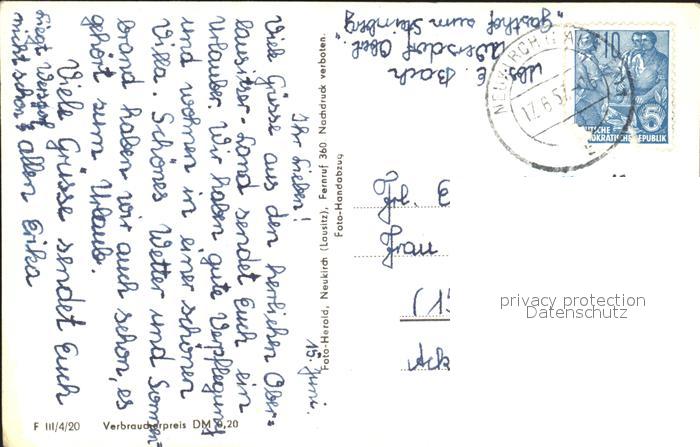 15. Juni.
Ihr Lieben!
Viele Grüsse aus den herrlichen Ober=
lausitzer-Land sendet Euch ein
Urlauber. Wir haben gute Verpflegung
und wohnen in einer schönen
Villa. Schönes Wetter und Sonnen=
brand haben wir auch schon, es
gehört zum Urlaub.
Viele Grüsse sendet Euch
allen Erika
liegt Weifdorf
nicht schön?
Foto-Herold, Neukirch (Lausitz), Fernruf 360 Nachdruck verboten.
Foto-Handabzug
F III/4/20 Verbraucherpreis DM 0,20
Abs. E. Bach
Ober
"Gasthof zum Steinberg"
NEUKIRCH (LAUSITZ)
17.6.57
10
5
DEUTSCHE
DEMOKRATISCHE REPUBLIK
privacy protection
Datenschutz